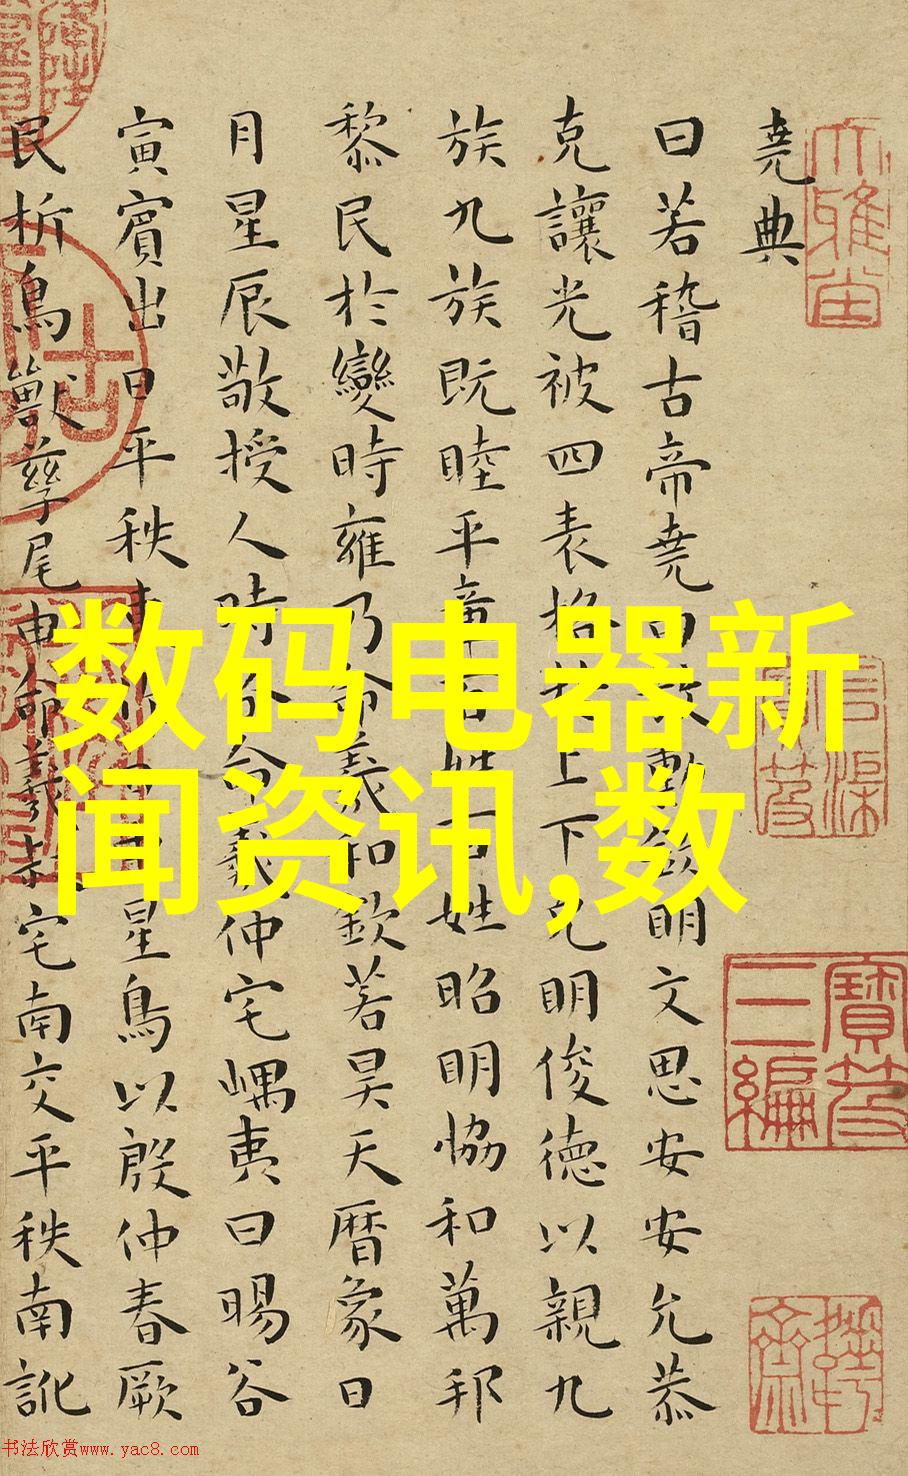 堯典
曰若稽古帝堯曰放勳欽明文思安安允恭
克讓光被四表格于上下克明俊德以親九
族九族既睦平章百姓百姓昭明恊和萬邦
黎民於變時雍乃命羲和欽若昊天暦象日
月星辰敬授人時分命羲仲宅嵎夷曰暘谷
寅賓出日平秩東作日中星鳥以殷仲春厥
民析鳥獸孳尾申命羲叔宅南交平秩南訛
寶笈三編
数码电器新
闻资讯,数
书法欣赏www.yac8.com